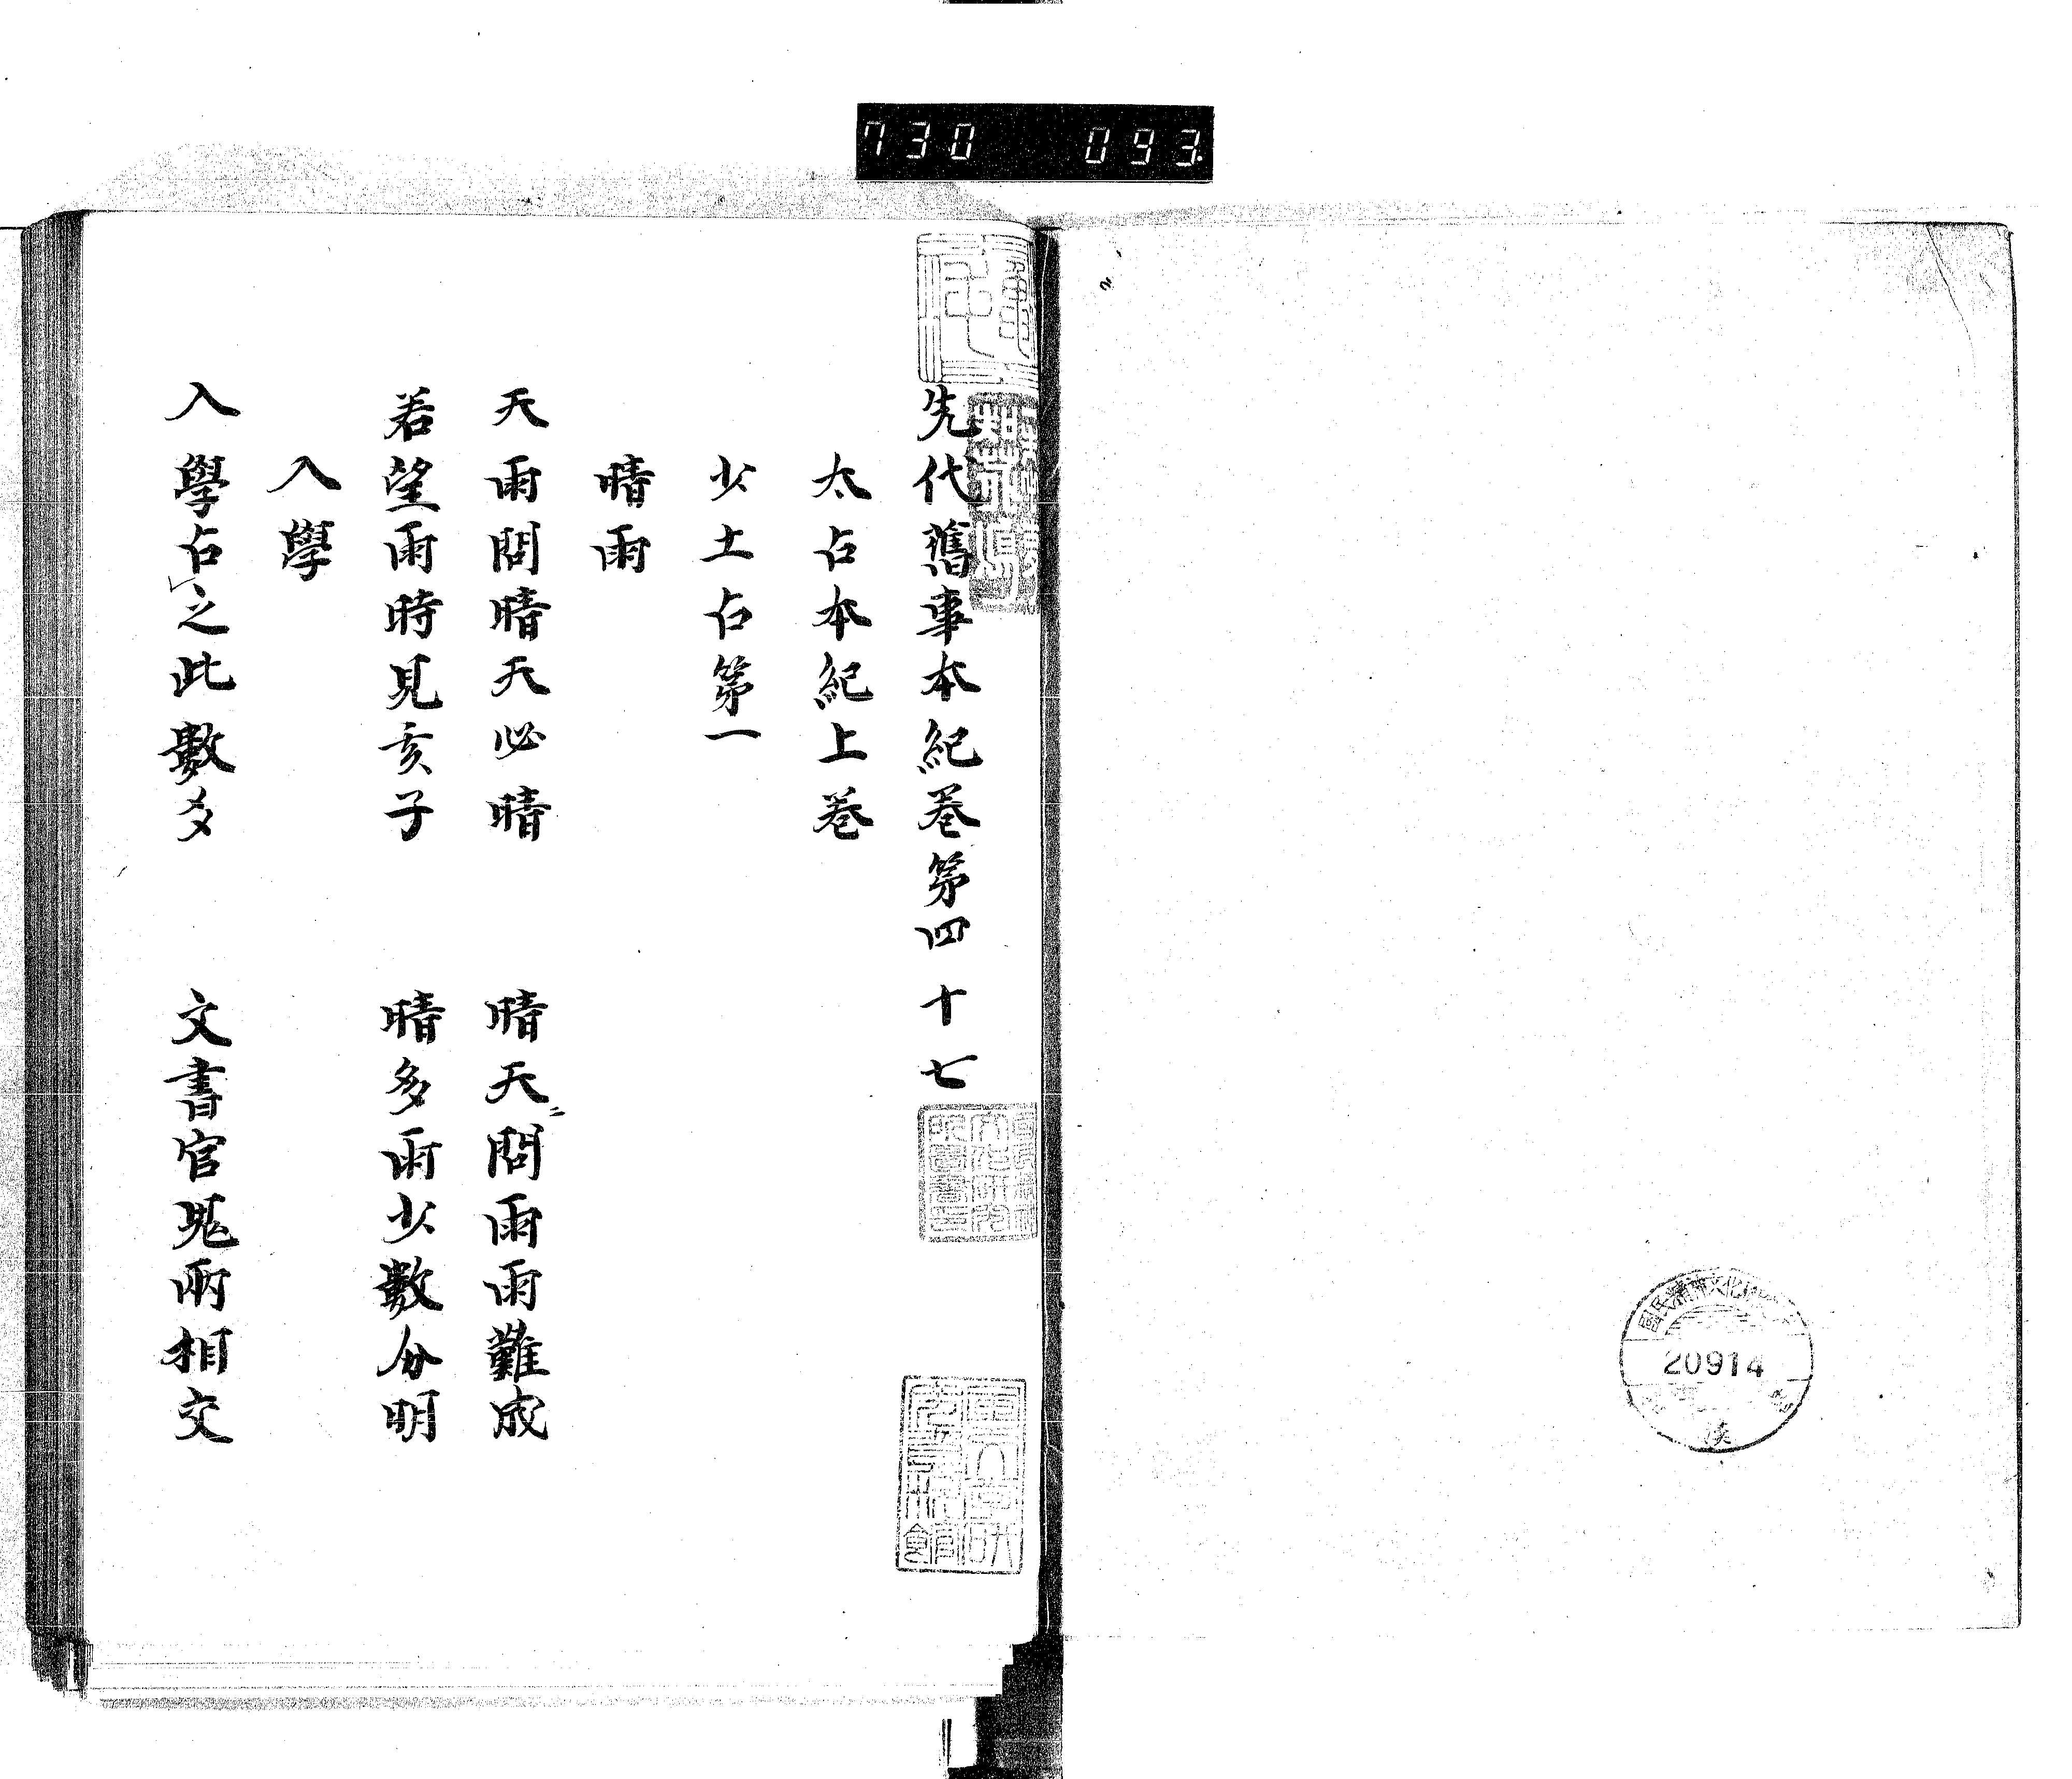 730 093
先代舊事本紀巻第四十七
太占本紀上巻
少土占第一
晴雨
天雨問晴天必晴 晴天問雨雨難成
若望雨時見亥子 晴多雨少數分明
入學
入學占之此數多 文書官鬼兩相交
國民精神文化
20914